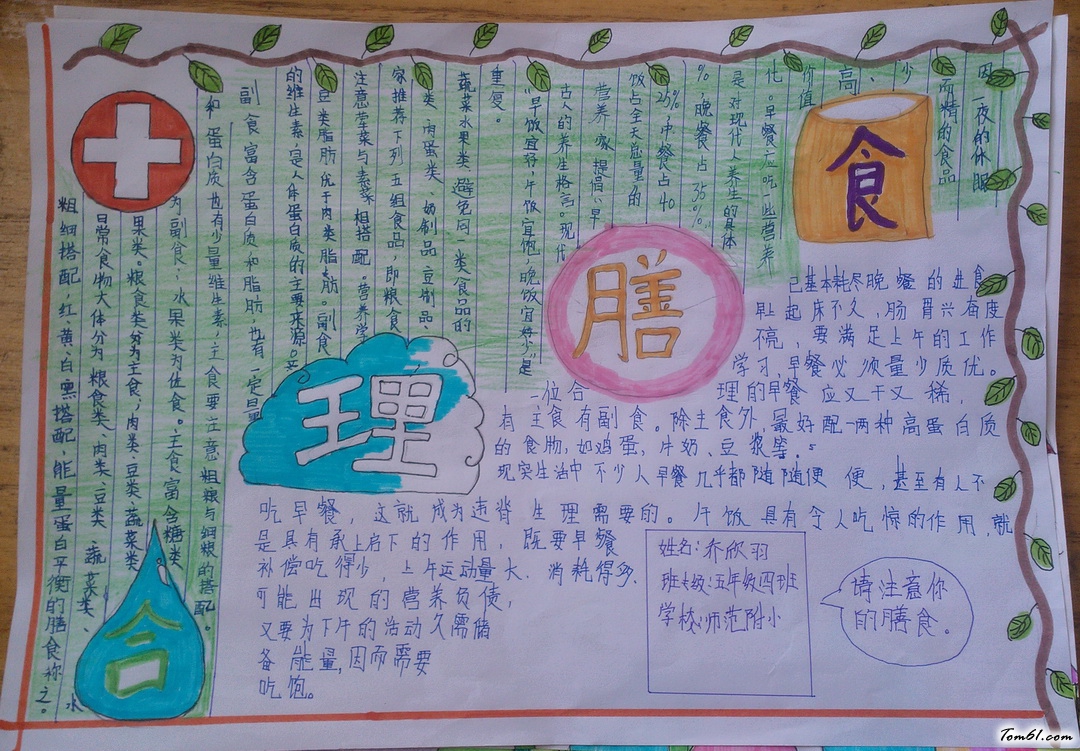 合
理
膳
食
粗细搭配,红、黄、白、黑搭配,能量蛋白平衡的膳食称之。
日常食物大体分为粮食类、肉类、豆类、蔬菜类、水
果类。粮食类分为主食;肉类、豆类、蔬菜类
为副食;水果类为佐食。主食富含糖类
和蛋白质也有少量维生素,主食要注意粗粮与细粮的搭配。
副食富含蛋白质和脂肪,也有一定量
的维生素,是人体蛋白质的主要来源。
豆类脂肪优于肉类脂肪。副食
注意荤菜与素菜相搭配。营养学
家推荐下列五组食品,即粮食
类、肉蛋类、奶制品豆制品、
蔬菜水果类避免同一类食品的
重复。
“早饭宜好,午饭宜饱,晚饭宜少”是
古人的养生格言。现代
营养家提倡,早
饭占全天总量的
25%,中餐占40
%,晚餐占35%。
是对现代人类生的具体
化。早餐应吃一些营养
价值
高、
少
而精的食品
因一夜的休眠
已基本耗尽晚餐的进食
早起床不久,肠胃兴奋度
不高,要满足上午的工作
学习,早餐必须量少质优。
一位合理的早餐应又干又稀,
有主食有副食。除主食外,最好配一两种高蛋白质
的食物,如鸡蛋,牛奶、豆浆等。
现实生活中不少人早餐几乎都随随便便,甚至有人不
吃早餐,这就成为违背生理需要的。午饭具有令人吃惊的作用,就
是具有承上启下的作用,既要早餐
补偿吃得少,上午运动量大,消耗得多,
可能出现的营养负债,
又要为下午的活动久需储
备能量,因而需要
吃饱。
姓名:乔欣羽
班级:五年级四班
学校:师范附小
请注意你
的膳食。
Tom61.com